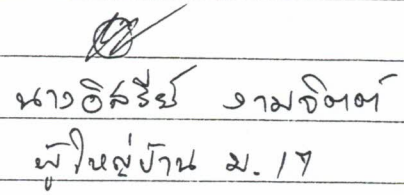 นางอิสรีย์ งามจิตต์
ผู้ใหญ่บ้าน ม.17